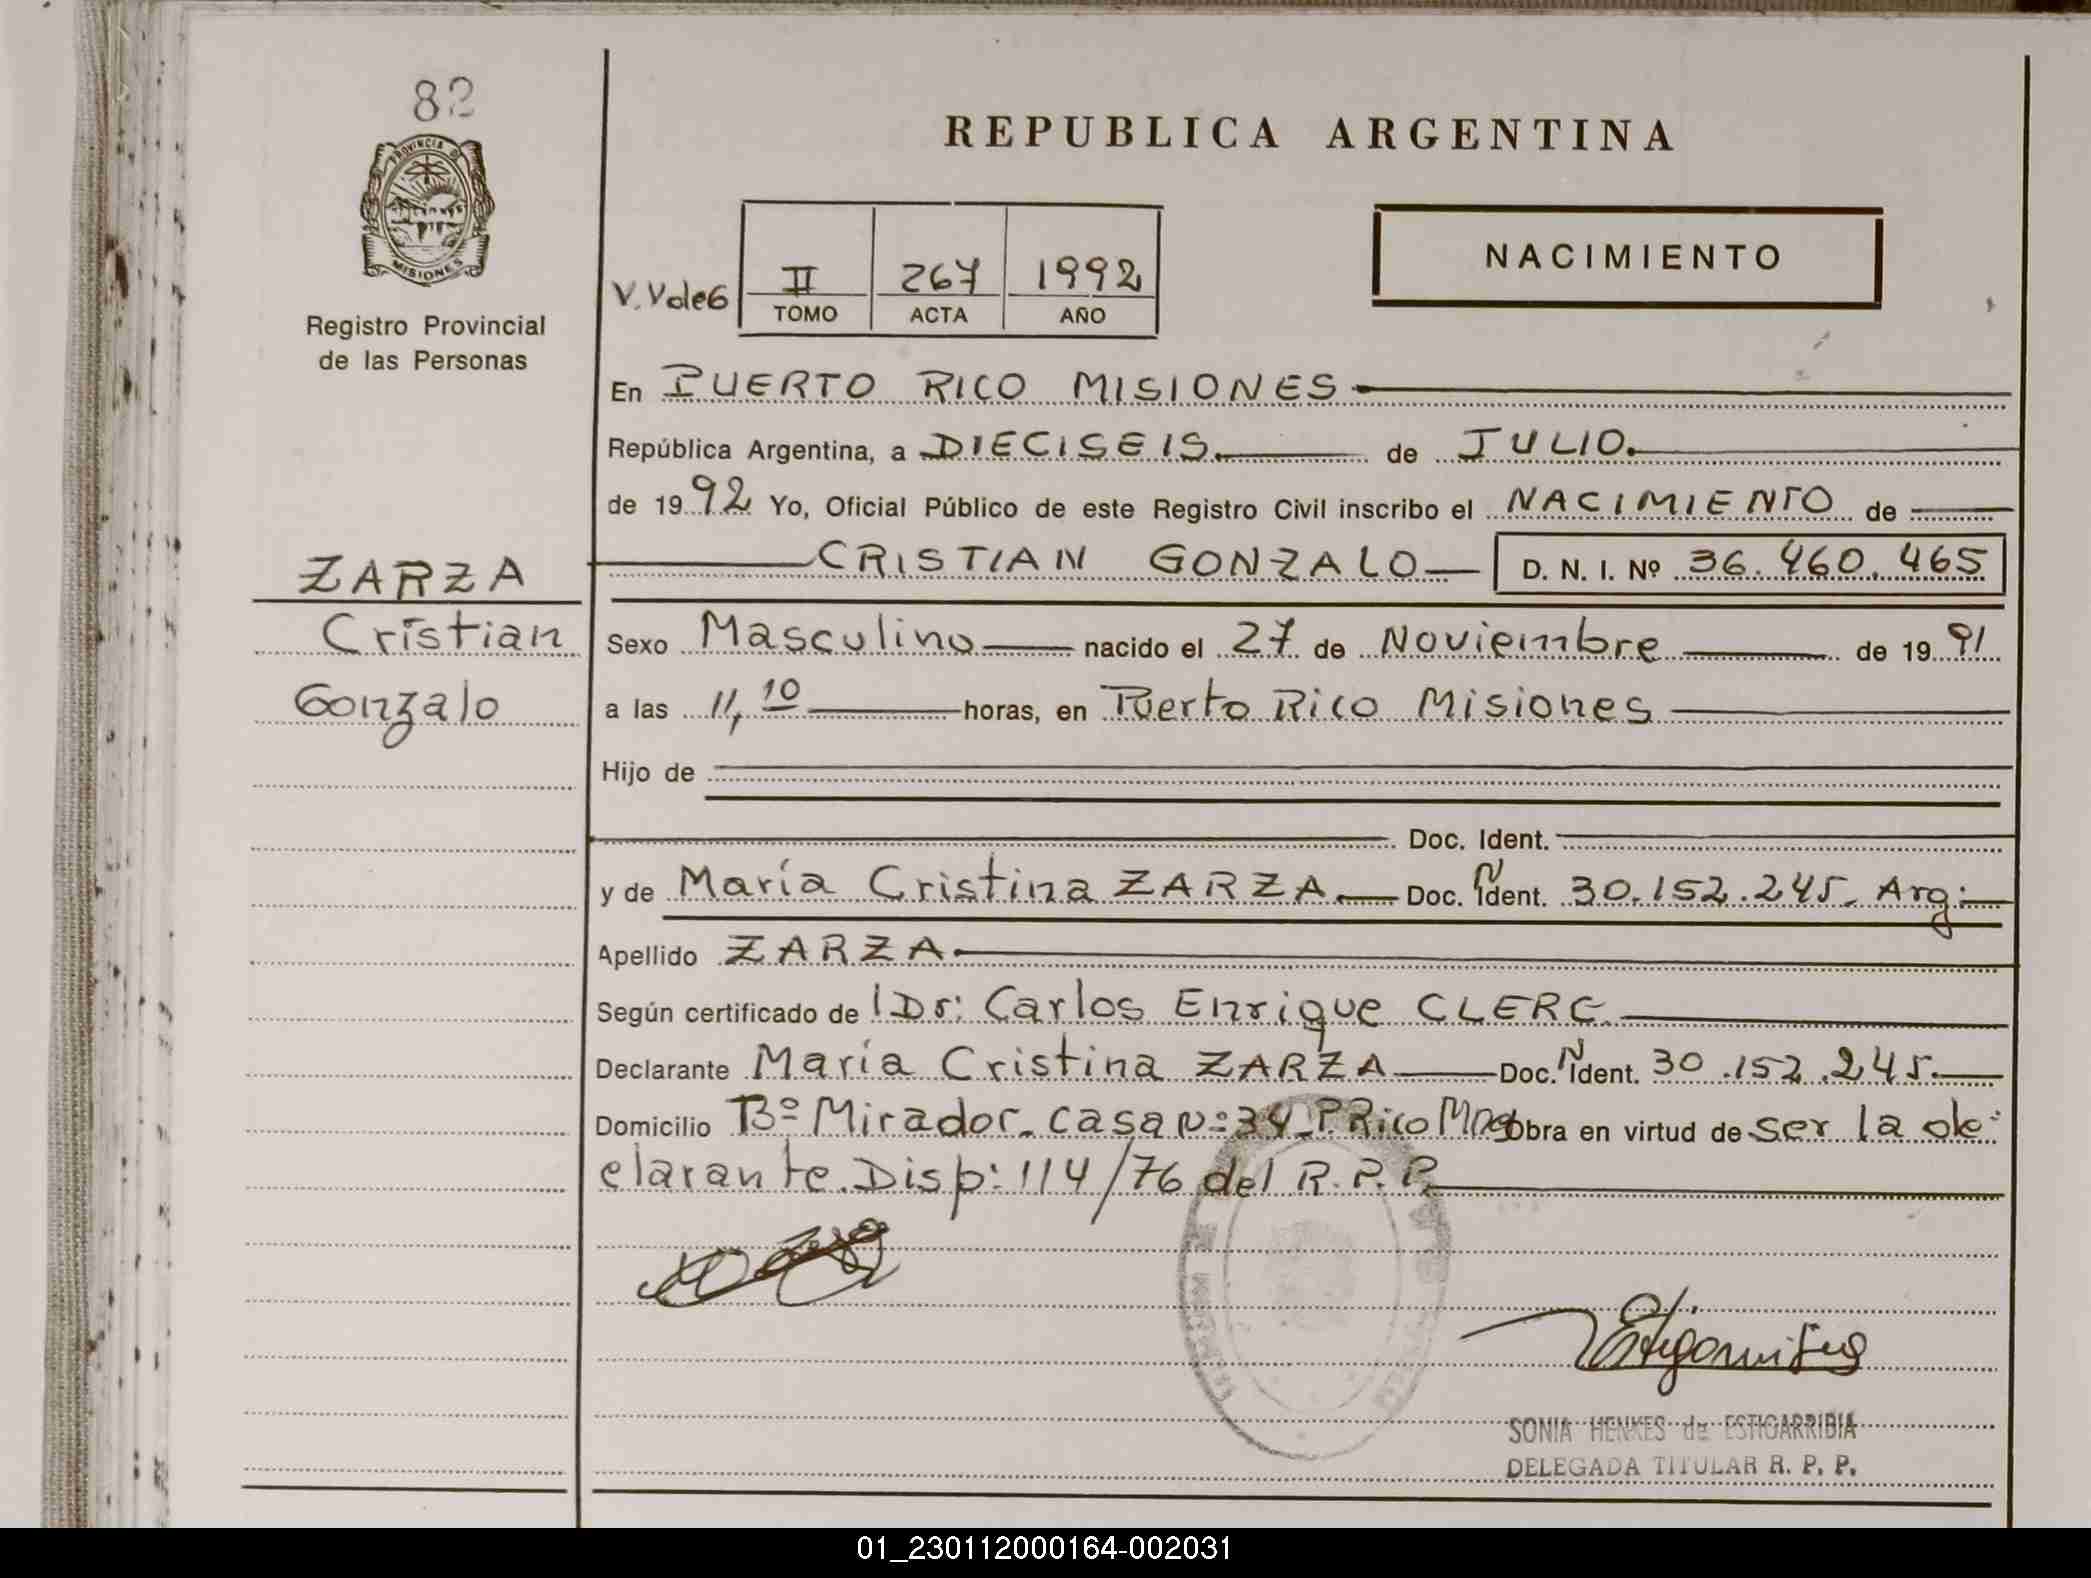 82
PROVINCIA DE
MISIONES
Registro Provincial
de las Personas
REPUBLICA ARGENTINA
NACIMIENTO
V. Vale 6
II 267 1992
TOMO ACTA AÑO
En PUERTO RICO MISIONES
República Argentina, a DIECISEIS. de JULIO.
de 1992 Yo, Oficial Público de este Registro Civil inscribo el NACIMIENTO de
CRISTIAN GONZALO D. N. I. Nº 36.460.465
ZARZA
Cristian
Gonzalo
Sexo Masculino nacido el 27 de Noviembre de 1991
a las 11,10 horas, en Puerto Rico Misiones
Hijo de
Doc. Ident.
y de María Cristina ZARZA. Doc. N Ident. 30.152.245. Arg:
Apellido ZARZA.
Según certificado de l Dr: Carlos Enrique CLERC.
Declarante María Cristina ZARZA Doc. N Ident. 30.152.245.
Domicilio Bº Mirador. casa Nº 34. P. Rico Mnes Obra en virtud de ser la de
clarante. Disp: 114/76 del R.P.P.
SONIA HENKES de ESTIGARRIBIA
DELEGADA TITULAR R. P. P.
01_230112000164-002031